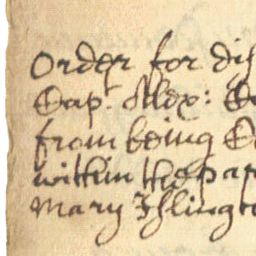 Order for dis
Cap: Alex: C
from being C
within the par
Mary Islingto